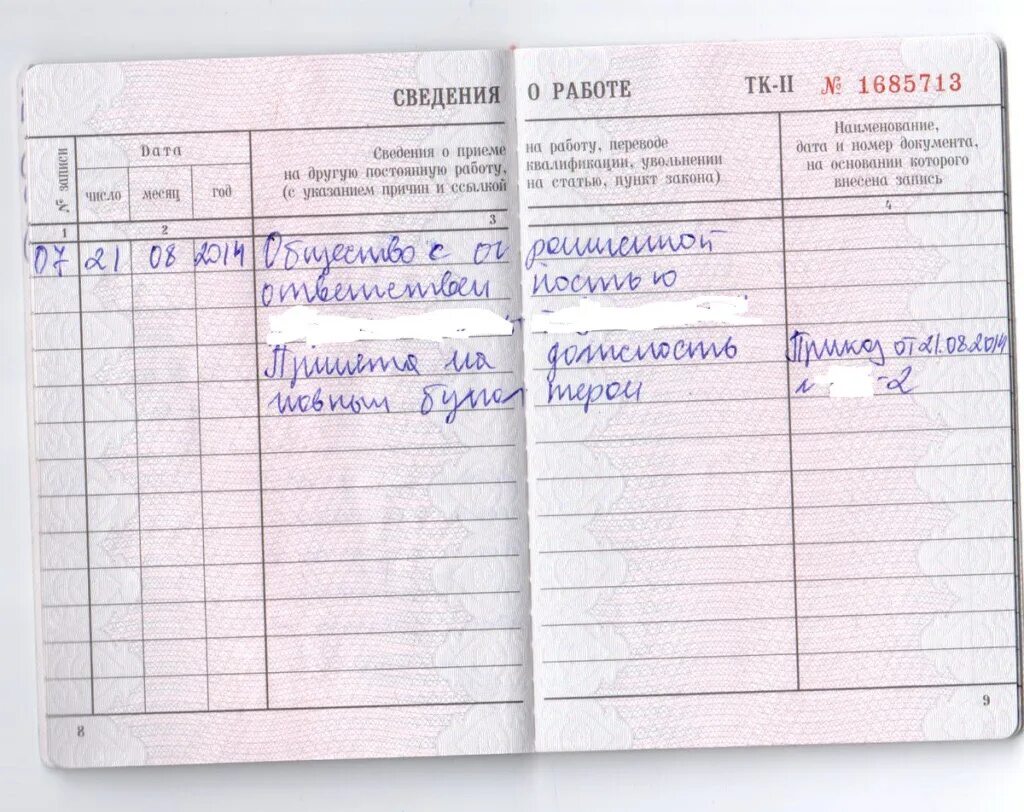 СВЕДЕНИЯ О РАБОТЕ ТК-II № 1685713
№ записи
Дата
число месяц год
Сведения о приеме на работу, переводе
на другую постоянную работу, квалификации, увольнении
(с указанием причин и ссылкой на статью, пункт закона)
Наименование,
дата и номер документа,
на основании которого
внесена запись
1 2 3 4
07 21 08 2014 Общество с ограниченной
ответственностью
Принята на должность Приказ от 21.08.2014
бухгалтером -2
8
9